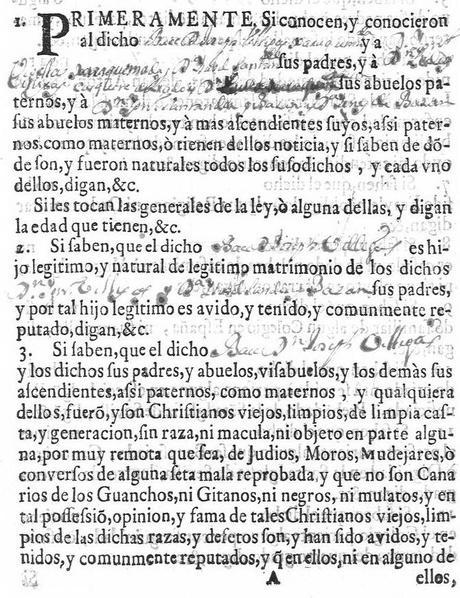 1. PRIMERAMENTE, Si conocen, y conocieron
al dicho y a
sus padres, y à
sus abuelos pa-
ternos, y à
sus abuelos maternos, y à mas ascendientes suyos, assi pater-
nos, como maternos, ò tienen dellos noticia, y si saben de dō-
de son, y fueron naturales todos los susodichos, y cada vno
dellos, digan, &c.
Si les tocan las generales de la ley, ò alguna dellas, y digan
la edad que tienen, &c.
2. Si saben, que el dicho es hi-
jo legitimo, y natural de legitimo matrimonio de los dichos
sus padres,
y por tal hijo legitimo es avido, y tenido, y comunmente re-
putado, digan, &c.
3. Si saben, que el dicho
y los dichos sus padres, y abuelos, visabuelos, y los demàs sus
ascendientes, assi paternos, como maternos, y qualquiera
dellos, fuerō, y son Christianos viejos, limpios, de limpia cas-
ta, y generacion, sin raza, ni macula, ni objeto en parte algu-
na, por muy remota que sea, de Judios, Moros, Mudejares, ò
conversos de alguna seta mala reprobada, y que no son Cana
rios de los Guanchos, ni Gitanos, ni negros, ni mulatos, y en
tal possessiō, opinion, y fama de tales Christianos viejos, lim-
pios de las dichas razas, y defetos son, y han sido avidos, y te-
nidos, y comunmente reputados, y q̄ en ellos, ni en alguno de
A ellos,